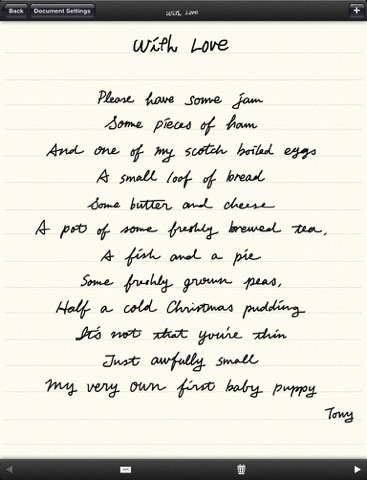 Back Document Settings With Love +
With Love
Please have some jam
Some pieces of ham
And one of my scotch boiled eggs
A small loof of bread
Some butter and cheese
A pot of some freshly brewed tea,
A fish and a pie
Some freshly grown peas,
Half a cold Christmas pudding
It's not that you're thin
Just awfully small
My very own first baby puppy
Tony